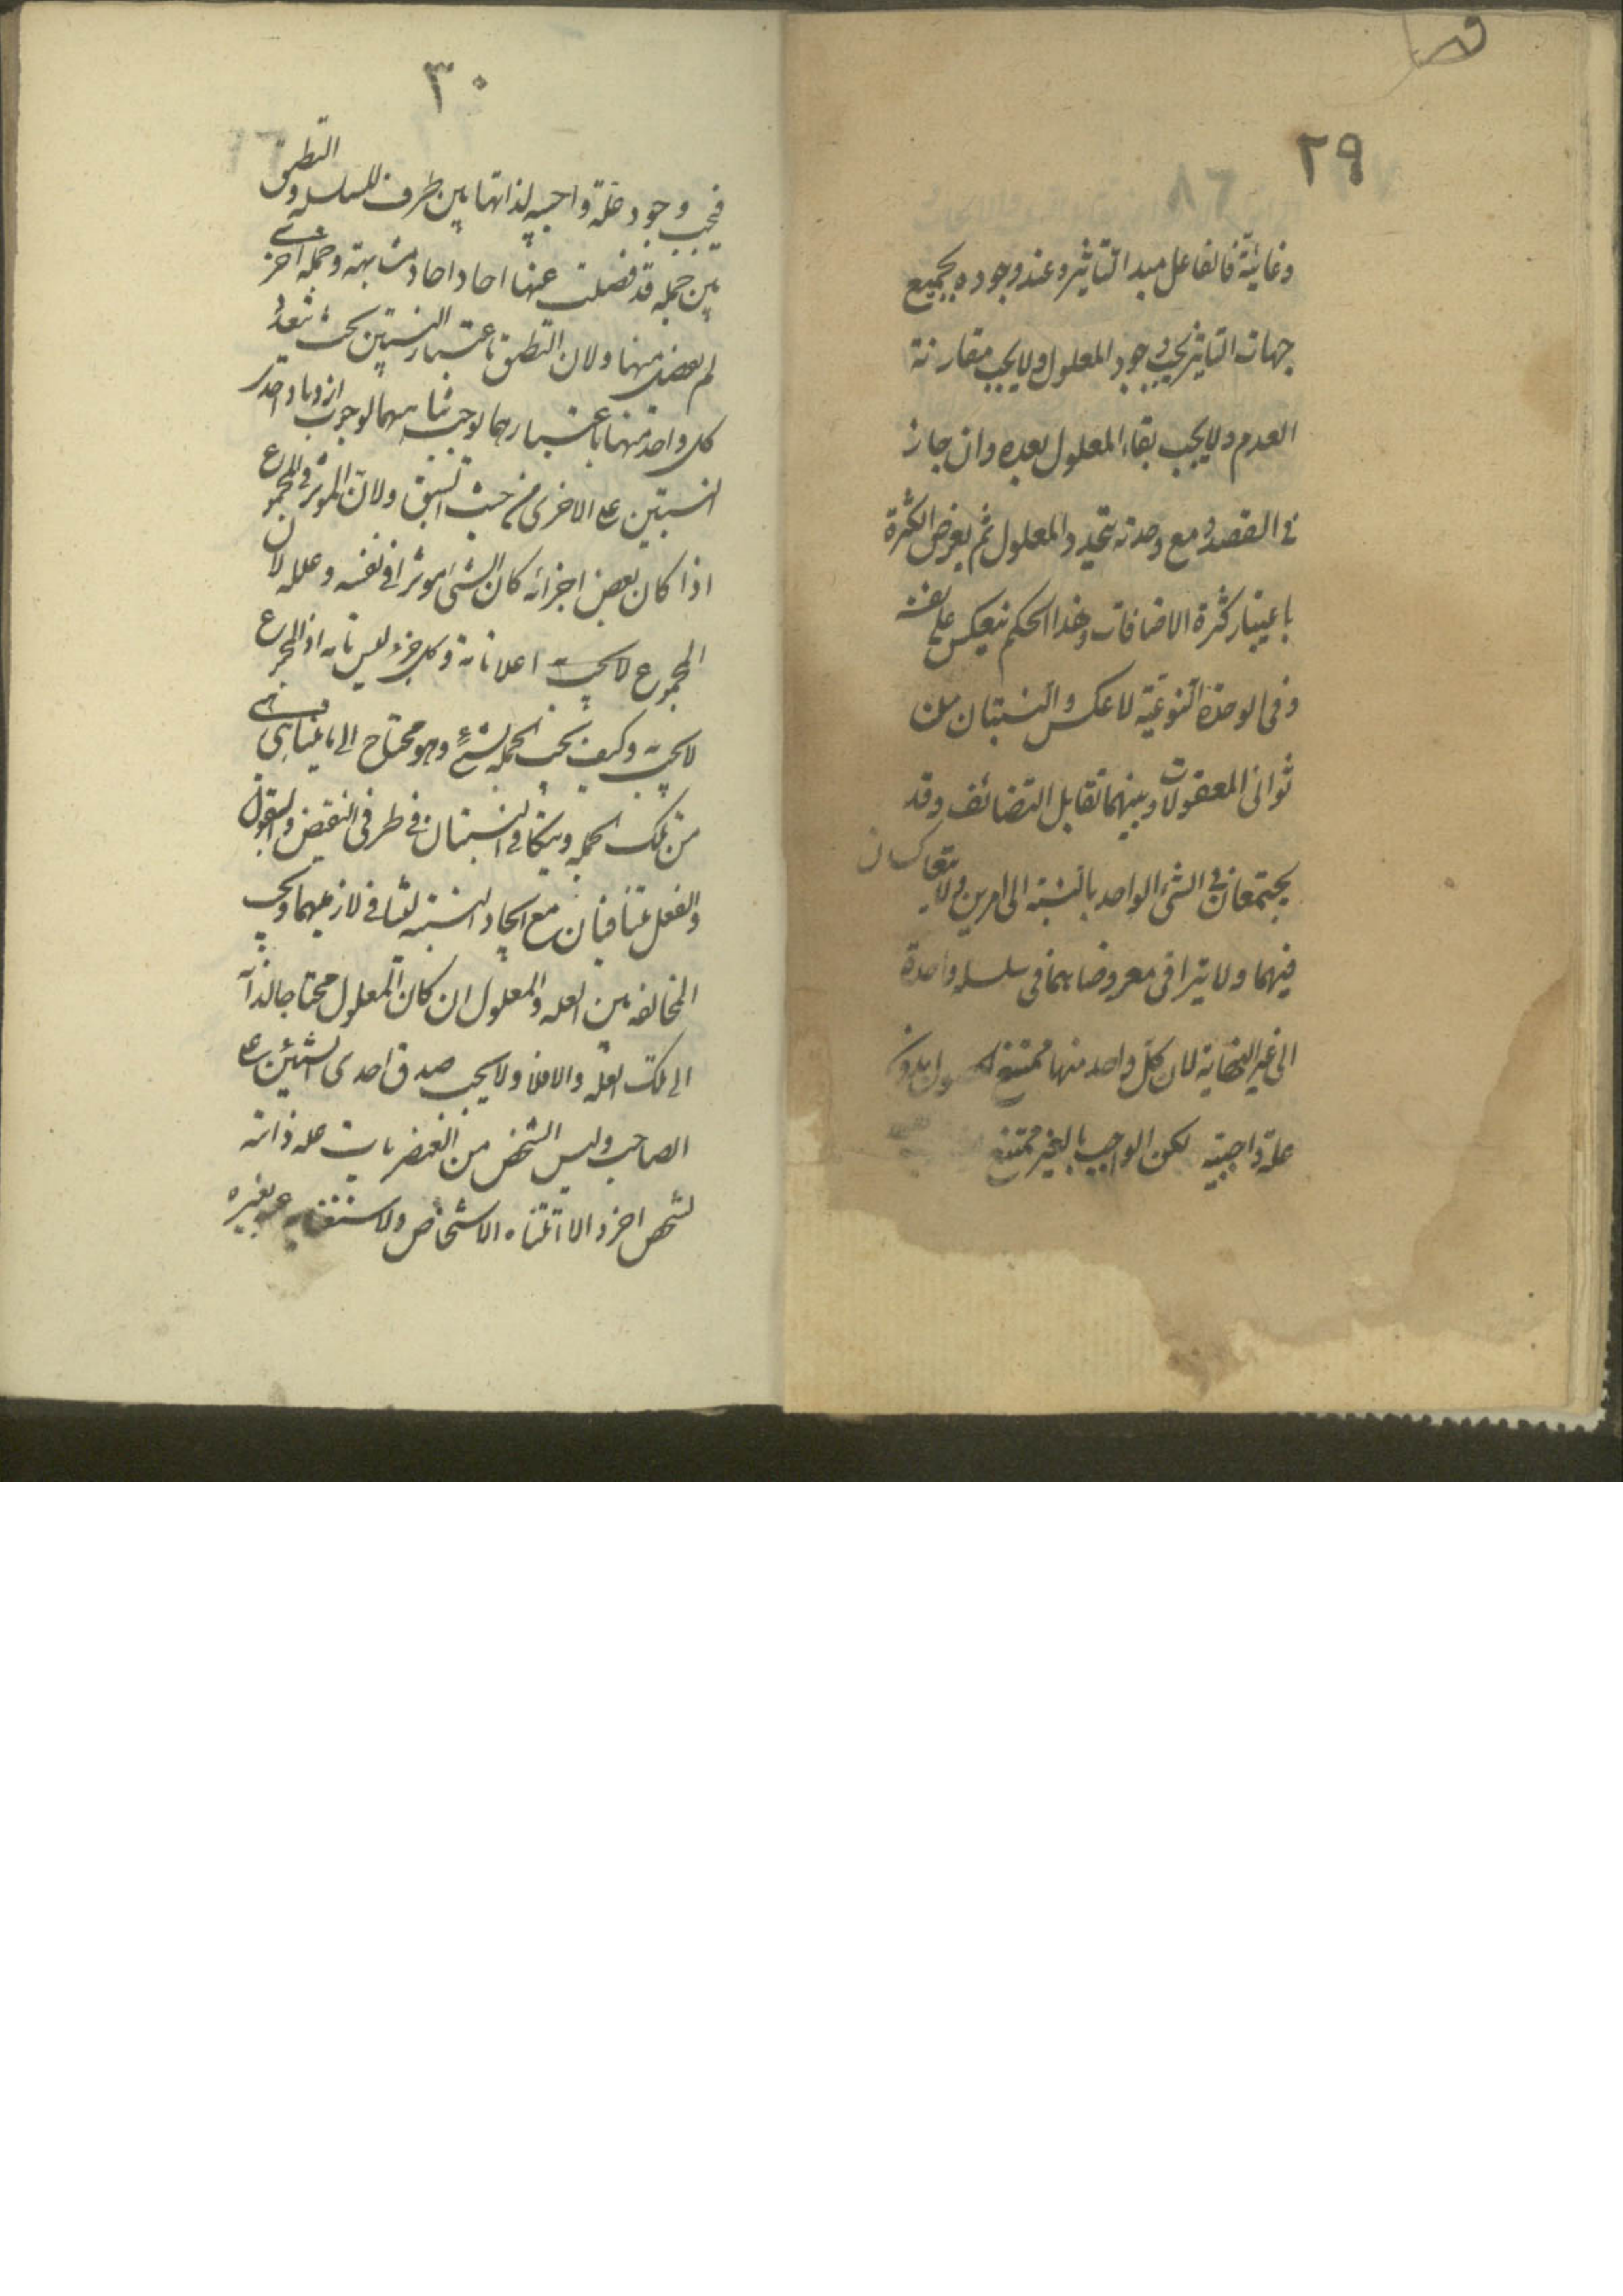 ٢٩
وغائية فالفاعل مبدا التاثير وعند وجوده بجميع
جهات التاثير يجب وجود المعلول ولا يجب مقارنة
العدم ولا يجب بقاء المعلول بعده وان جاز
فى المعد ومع وحدته يتحد المعلول ثم يعرض الكثرة
باعتبار كثرة الاضافات وهذا الحكم ينعكس على نفسه
وفى الوحدة النوعية لا عكس والنسبتان من
ثوانى المعقولات وبينهما تقابل التضائف وقد
يجتمعان فى الشئ الواحد بالنسبة الى امرين ولا يتعاكسان
فيهما ولا يتراقى معروضاهما فى سلسلة واحدة
الى غير النهاية لان كل واحد منها ممتنع الحصول بدون
علة واجبة لكن الواجب بالغير ممتنع
٣٠
فيجب وجود علة واجبه لذاتها هى طرف للسلسله وللتطبيق
بين جمله قد فصلت عنها احاد متناهية وجمله اخرى
لم يفصل منها ولان التطبيق باعتبار النسبتين بحيث يتعدد
كل واحد منها باعتبارهما يوجب تناهيهما لوجوب ازدياد احدى
النسبتين على الاخرى من حيث السبق ولان المؤثر فى المجموع
اذا كان بعض اجزائه كان الشئ مؤثرا فى نفسه وعلله لان
المجموع له علة تامة وكل جزء ليس علة تامة اذ المجموع
لا يجب به وكيف يجب الجملة بشئ وهو محتاج الى ما لا يتناهى
من تلك الجمله ويتكافى النسبتان فى طرفى النقيض والقبول
والفعل متنافيان مع اتحاد النسبة لتنافى لازميهما ويجب
المخالفه بين العله والمعلول ان كان المعلول محتاجا لذاته
الى تلك العله والا فلا ولا يجب صدق احدى النسبتين على
المصاحب وليس الشخص من العنصريات عله ذاتية
لشخص اخر والا لم تتناه الاشخاص ولاستغنائه عنه بغيره